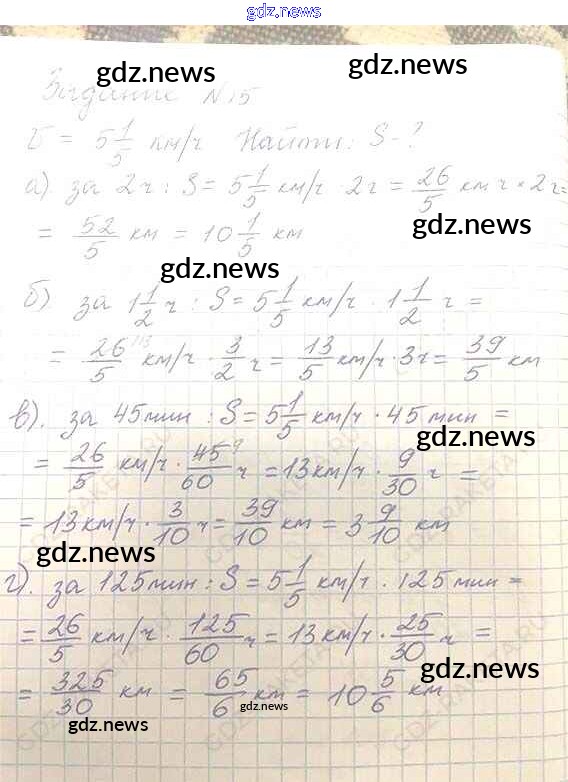 gdz.news
gdz.news
gdz.news
Задание №15
v = 5 1/5 км/ч Найти: S-?
а) за 2ч : S = 5 1/5 км/ч 2ч = 26/5 км ч · 2ч =
gdz.news
= 52/5 км = 10 1/5 км
gdz.news
б) за 1 1/2 ч : S = 5 1/5 км/ч · 1 1/2 ч =
= 26/5 км/ч · 3/2 ч = 13/5 км/ч · 3ч = 39/5 км
в). за 45мин : S = 5 1/5 км/ч · 45мин =
gdz.news
= 26/5 км/ч · 45/60 ч = 13км/ч · 9/30 ч =
= 13км/ч · 3/10 ч = 39/10 км = 3 9/10 км
gdz.news
г). за 125мин : S = 5 1/5 км/ч · 125мин =
= 26/5 км/ч · 125/60 ч = 13км/ч · 25/30 ч =
gdz.news
= 325/30 км = 65/6 км = 10 5/6 км
gdz.news
gdz.news